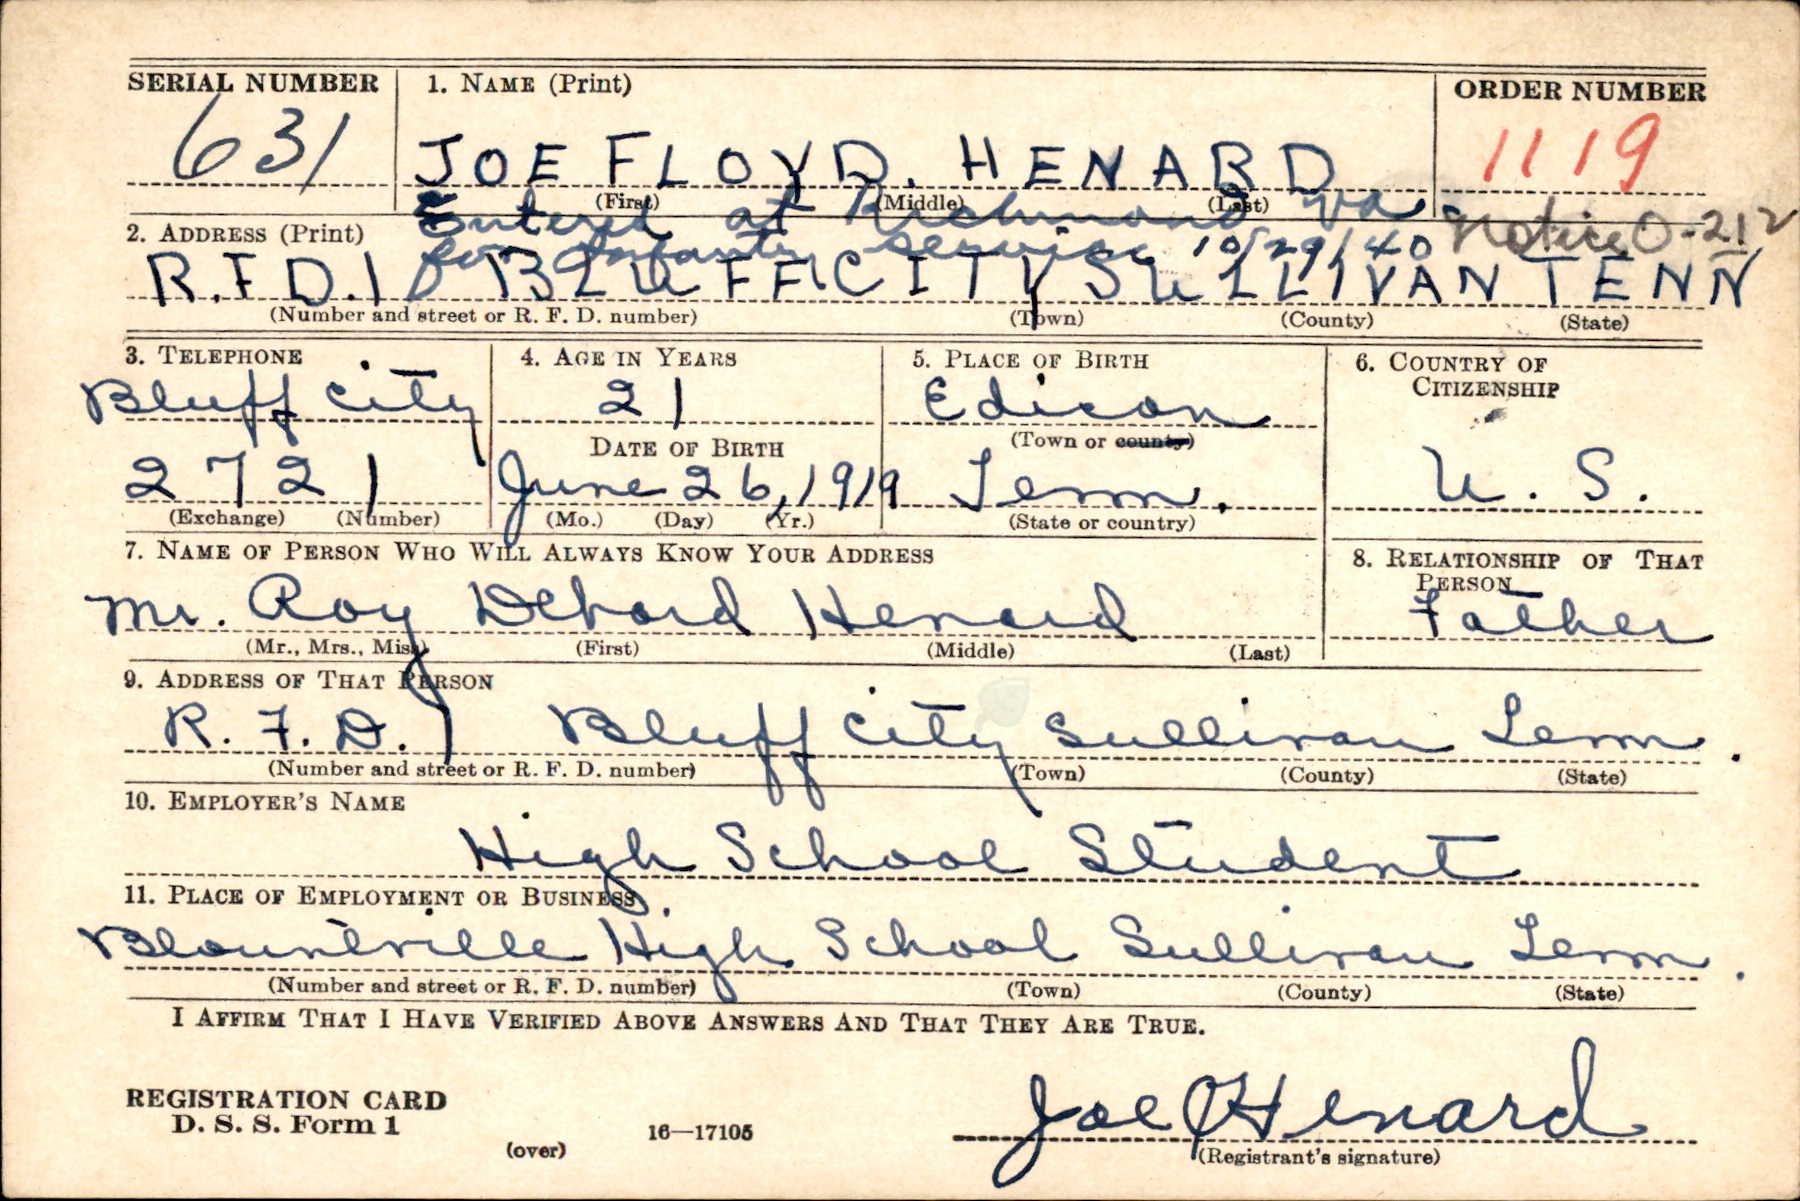 SERIAL NUMBER 1. NAME (Print) ORDER NUMBER
631 JOE FLOYD. HENARD 1119
(First) (Middle) (Last)
Entered at Richmond Va. Notice O-212
2. ADDRESS (Print) for Infantry service 10/29/40
R.F.D. 1 BLUFF CITY SULLIVAN TENN
(Number and street or R. F. D. number) (Town) (County) (State)
3. TELEPHONE 4. AGE IN YEARS 5. PLACE OF BIRTH 6. COUNTRY OF CITIZENSHIP
Bluff City 21 Edison
DATE OF BIRTH (Town or county)
2721 June 26, 1919 Tenn. U. S.
(Exchange) (Number) (Mo.) (Day) (Yr.) (State or country)
7. NAME OF PERSON WHO WILL ALWAYS KNOW YOUR ADDRESS 8. RELATIONSHIP OF THAT PERSON
Mr. Roy Henard Father
(Mr., Mrs., Miss) (First) (Middle) (Last)
9. ADDRESS OF THAT PERSON
R. F. D. 1 Bluff City Sullivan Tenn.
(Number and street or R. F. D. number) (Town) (County) (State)
10. EMPLOYER'S NAME
High School Student
11. PLACE OF EMPLOYMENT OR BUSINESS
Blountville High School Sullivan Tenn.
(Number and street or R. F. D. number) (Town) (County) (State)
I AFFIRM THAT I HAVE VERIFIED ABOVE ANSWERS AND THAT THEY ARE TRUE.
REGISTRATION CARD
D. S. S. Form 1
(over) 16—17105 Joe F Henard
(Registrant's signature)